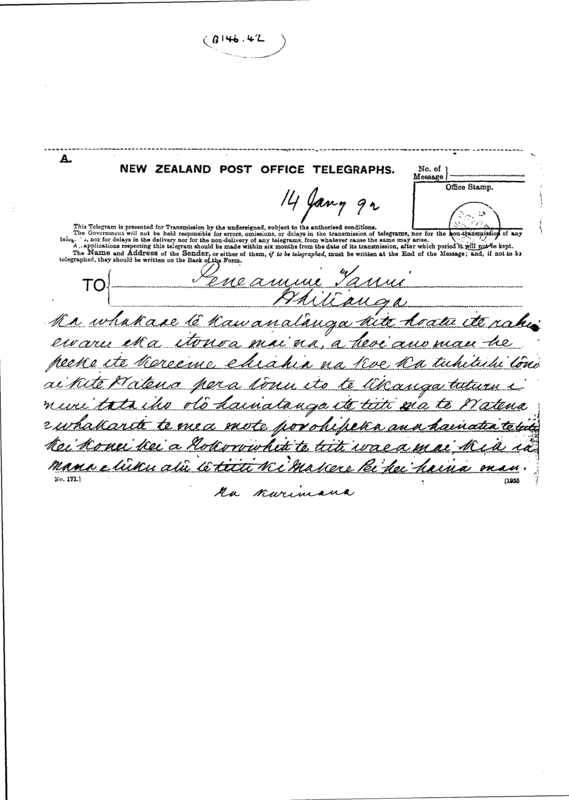 (B146.42)
A.
NEW ZEALAND POST OFFICE TELEGRAPHS.
No. of
Message
14 Jany 92
Office Stamp.
This Telegram is presented for Transmission by the undersigned, subject to the authorised conditions.
The Government will not be held responsible for errors, omissions, or delays in the transmission of telegrams, nor for the non-transmission of any
nor for delays in the delivery nor for the non-delivery of any telegrams, from whatever cause the same may arise.
applications respecting this telegram should be made within six months from the date of its transmission, after which period it will not be kept.
The Name and Address of the Sender, or either of them, if to be telegraphed, must be written at the End of the Message; and, if not to be
telegraphed, they should be written on the Back of the Form.
TO Peneamine Tanui
Whitianga
Ka whakaae te Kawanatanga kite hoatu ite rahi
ewaru eka itonoa mai na, a heoi ano mau he
peeke ite kereeme ehiahia na koe Ka tuhituhi tonu
ai kite Watene pera tonu ito te tikanga tuturu i
muri tata iho oto hainatanga ite tiiti ma te Watene
e whakarite te mea mote porohipeka ana hainatia te tiiti
kei konei kei a te tiiti waea mai kia ia
mana e tuku atu te tiiti ki Makere Pei hei haina mau.
No. 171.]
[1955
Na Kurimana